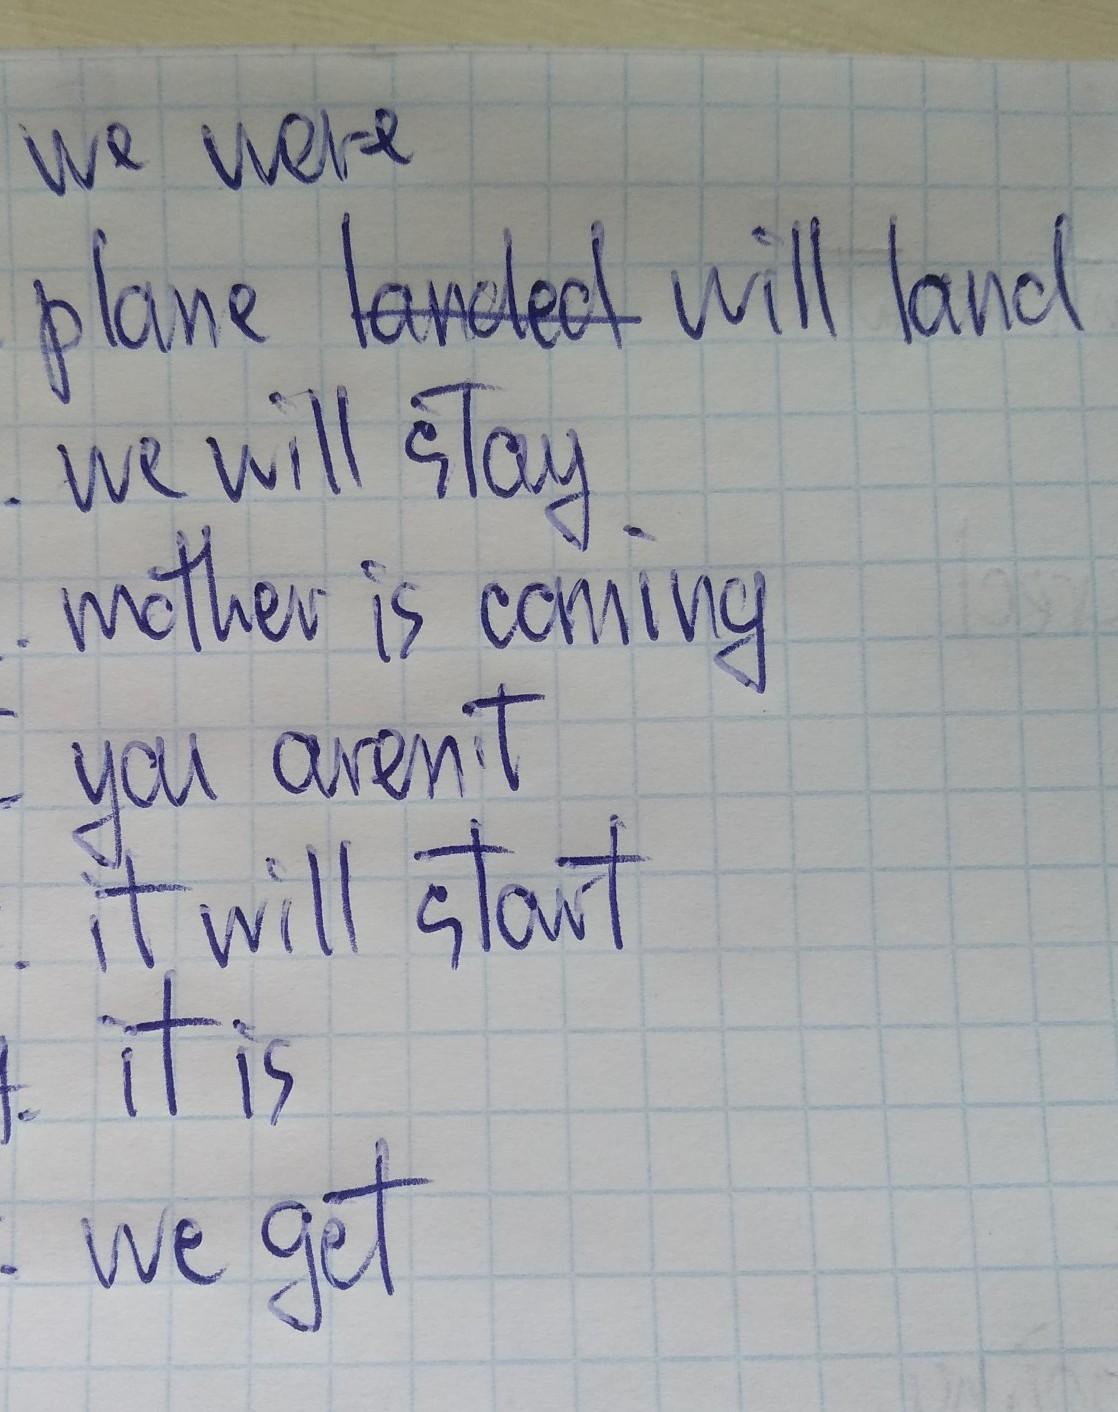 we were
plane landed will land
we will stay
mother is coming
you aren't
it will start
it is
we get